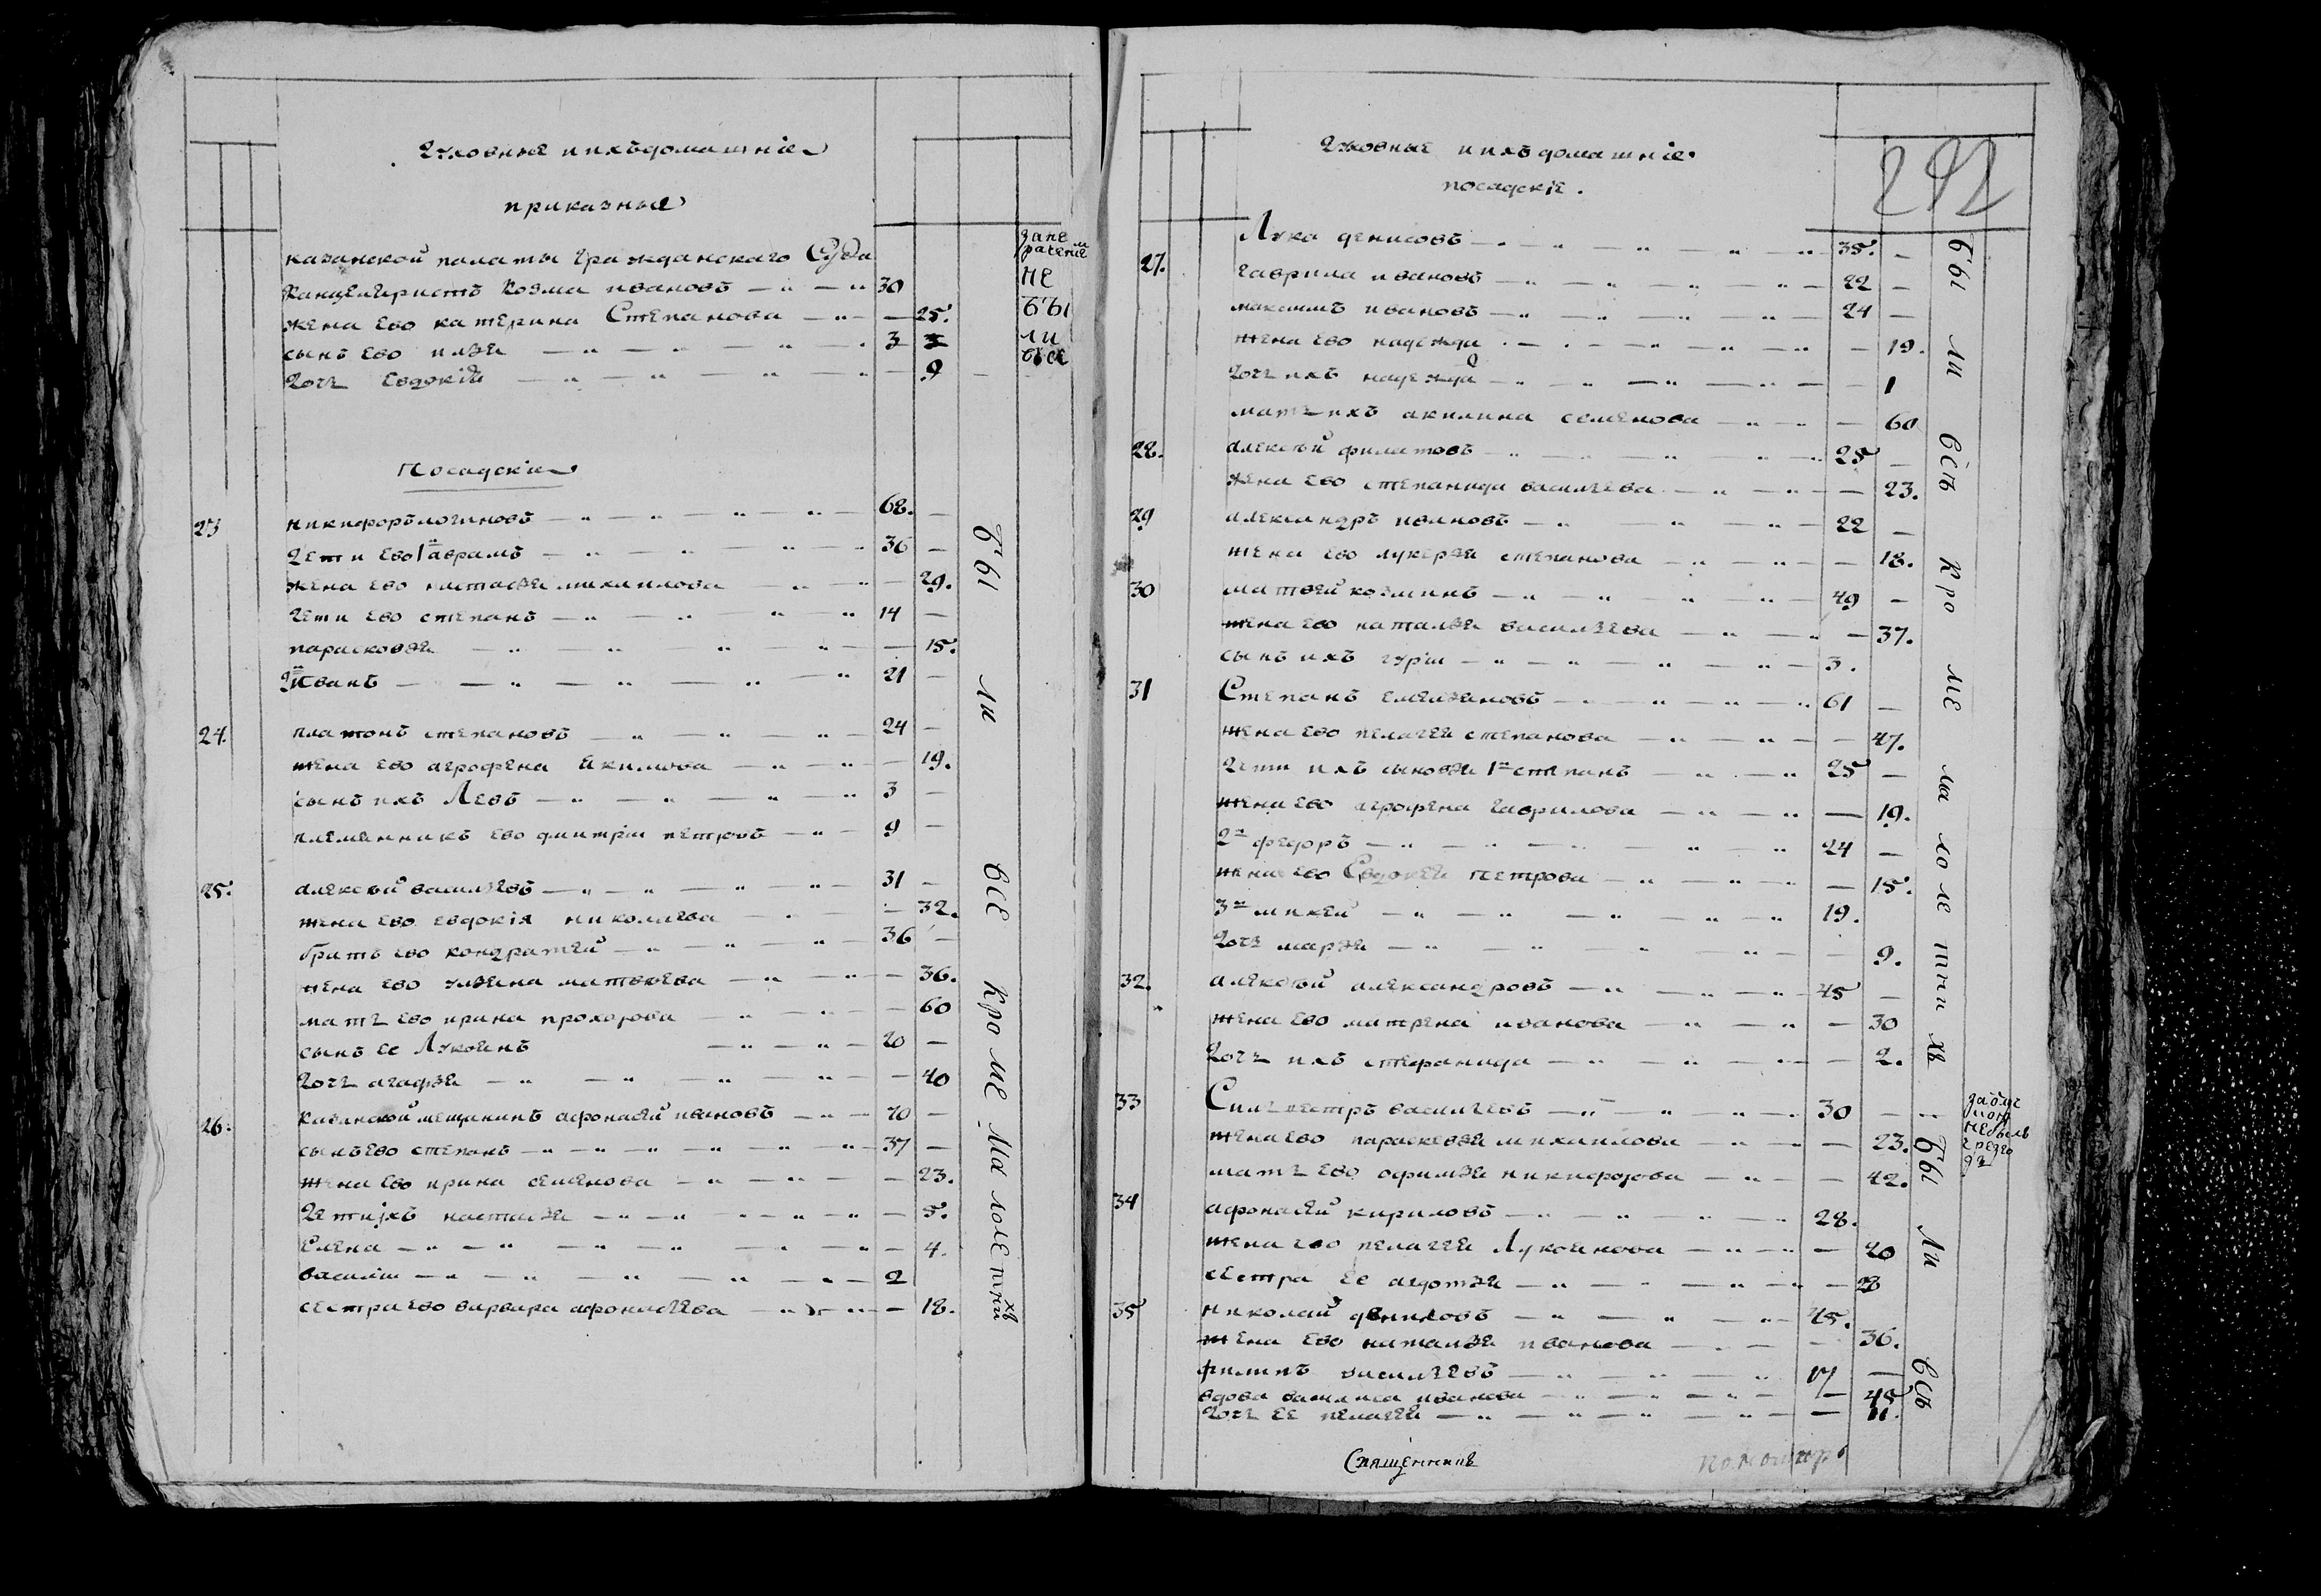 духовныя и ихъ домашнiе
приказныя
казанской палаты гражданскаго Суда
Канцеляристъ Козма ивановъ 30
жена ево катерина Степанова 25.
сынъ ево илья 3
дочь евдокiя 9
не
были
все
Посадскiе
23 никифоръ логиновъ 68.
дети ево 1й аврамъ 36
жена ево настасья михаилова 29.
дети ево степанъ 14
парасковья 15.
2й иванъ 21
24. платонъ степановъ 24
жена ево аграфена Якимова 19.
сынъ ихъ Левъ 3
племянникъ ево дмитрiи петровъ 9
25. алексѣй васильевъ 31
жена ево евдокiя николаева 32.
братъ ево кондратей 36
жена ево ульяна матвѣева 36.
мать ево ирина прохорова 60
сынъ ее Лукоянъ 20
дочь агафья 40
26. казанской мещанинъ афонасей ивановъ 70
сынъ ево степанъ 37
жена ево ирина семенова 23.
дети ихъ настасья 5.
Елена 4.
василiи 2
сестра ево варвара афонасьева 18.
были все кроме малолетнихъ
духовныя и ихъ домашнiе
посадскiе.
292
27. Лука денисовъ 35.
гаврила ивановъ 22
максимъ ивановъ 24
жена ево надежда 19.
дочь ихъ надежда 1
мать ихъ акилина семенова 60
28. алексѣй филатовъ 25
жена ево степанида васильева 23.
29 александръ ивановъ 22
жена ево лукерья степанова 18.
30 матвей козминъ 49
жена ево наталья васильева 37.
сынъ ихъ гурiи 3.
31 Степанъ емельяновъ 61
жена ево пелагея степанова 47.
дети ихъ сыновья 1й степанъ 25
жена ево аграфена гаврилова 19.
2й федоръ 24
жена ево Евдокея петрова 15.
3й михей 19.
дочь марья 9.
32. алексѣй александровъ 45
жена ево матрена иванова 30
дочь ихъ стефанида 2.
33 Сильвестръ васильевъ 30
жена ево параскевья михаилова 23.
мать ево офимья никифорова 42.
34 афонасей кириловъ 28.
жена ево пелагея Лукоянова 20
сестра ее авдотья 23
35 николай даниловъ 45.
жена ево наталья иванова 36.
филипъ васильевъ 17
вдова василиса иванова 45
дочь ее пелагея 11.
были всѣ кроме малолетнихъ
были всѣ
Священникъ